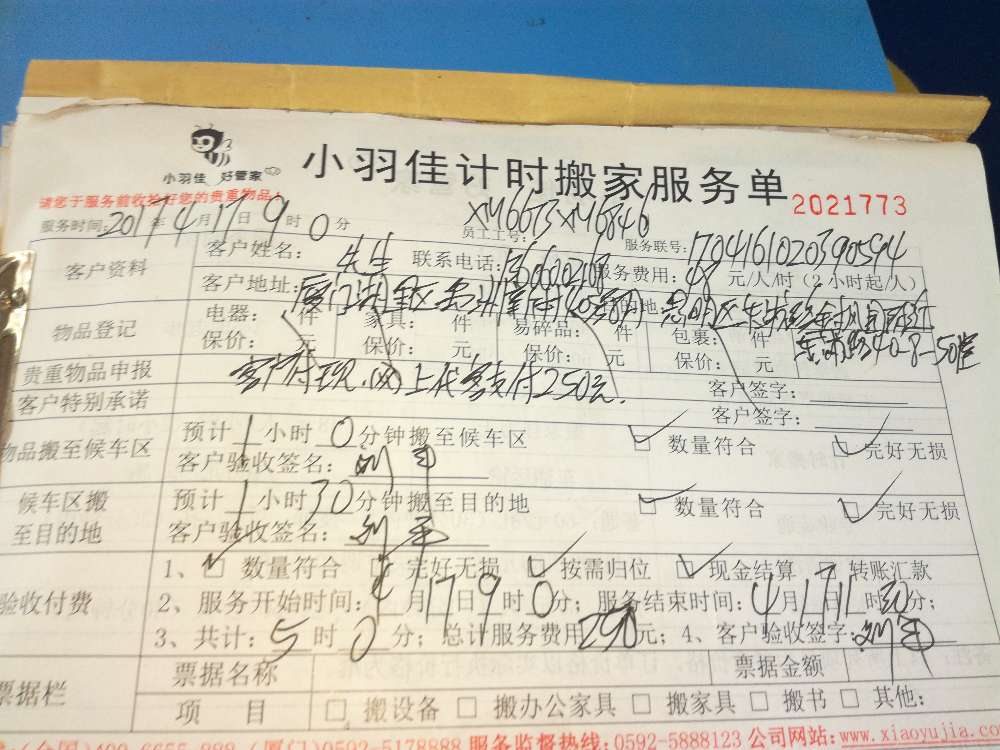 小羽佳 好管家
小羽佳计时搬家服务单
2021773
请您于服务前收捡好您的贵重物品!
服务时间: 2017年4月17日9时0分
员工工号: XM6673 XM6846
服务联号: 170416102039 0594
客户资料
客户姓名: 先生 联系电话: 服务费用: 48元/人/时(2小时起/人)
客户地址: 厦门湖里区
物品登记
电器: 件 家具: 件 易碎品: 件 包裹: 件
保价: 元 保价: 元 保价: 元 保价: 元
40-8-502
贵重物品申报
客户付现,网上代客支付250元. 客户签字:
客户特别承诺
客户签字:
物品搬至候车区
预计1小时0分钟搬至候车区 数量符合 完好无损
客户验收签名:
候车区搬至目的地
预计1小时30分钟搬至目的地 数量符合 完好无损
客户验收签名:
验收付费
1、 数量符合 完好无损 按需归位 现金结算 转账汇款
2、服务开始时间: 4月17日9时0分; 服务结束时间: 4月17 11时30分;
3、共计: 5时0分; 总计服务费用250元; 4、客户验收签字:
票据栏
票据名称 票据金额
项 目 搬设备 搬办公家具 搬家具 搬书 其他:
(全国)400-6655-888 (厦门)0592-5178888 服务监督热线:0592-5888123 公司网站:www.xiaoyujia.com